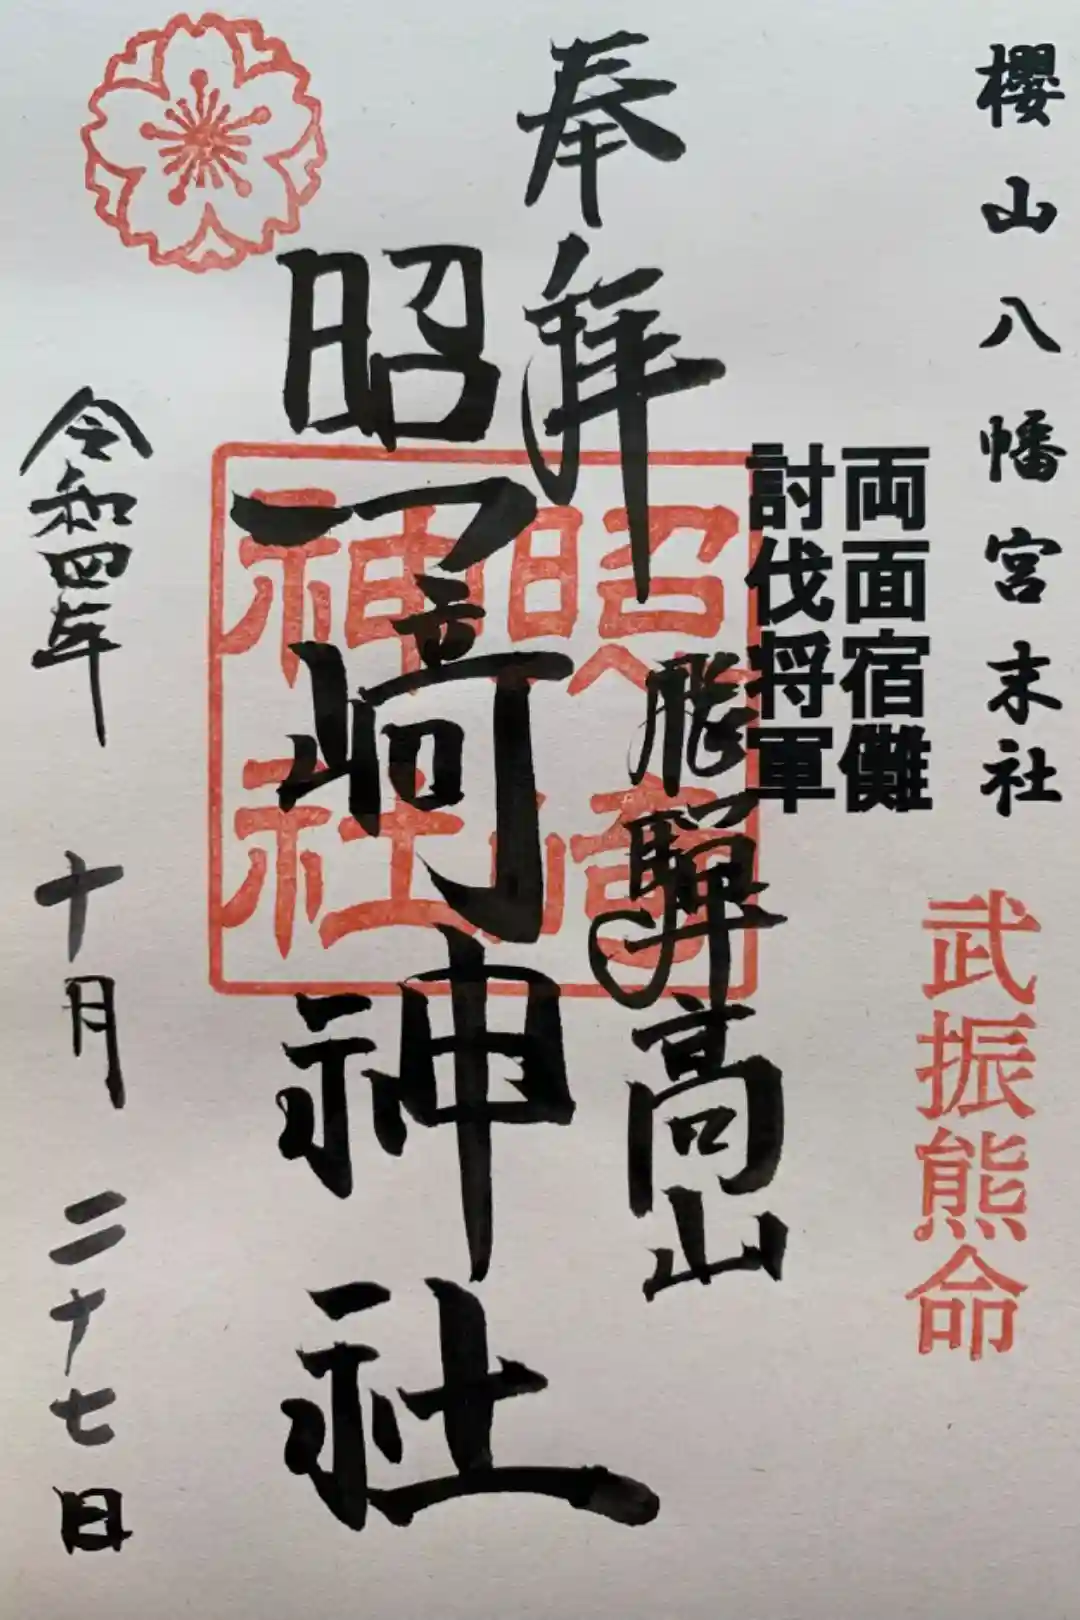 櫻山八幡宮末社
武振熊命
両面宿儺
討伐将軍
奉拝
飛騨高山
照﨑神社
照﨑神社
令和四年 十月 二十七日